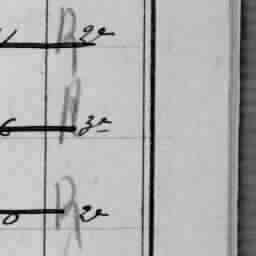 R 2e
6 R 3e
0 R 2e